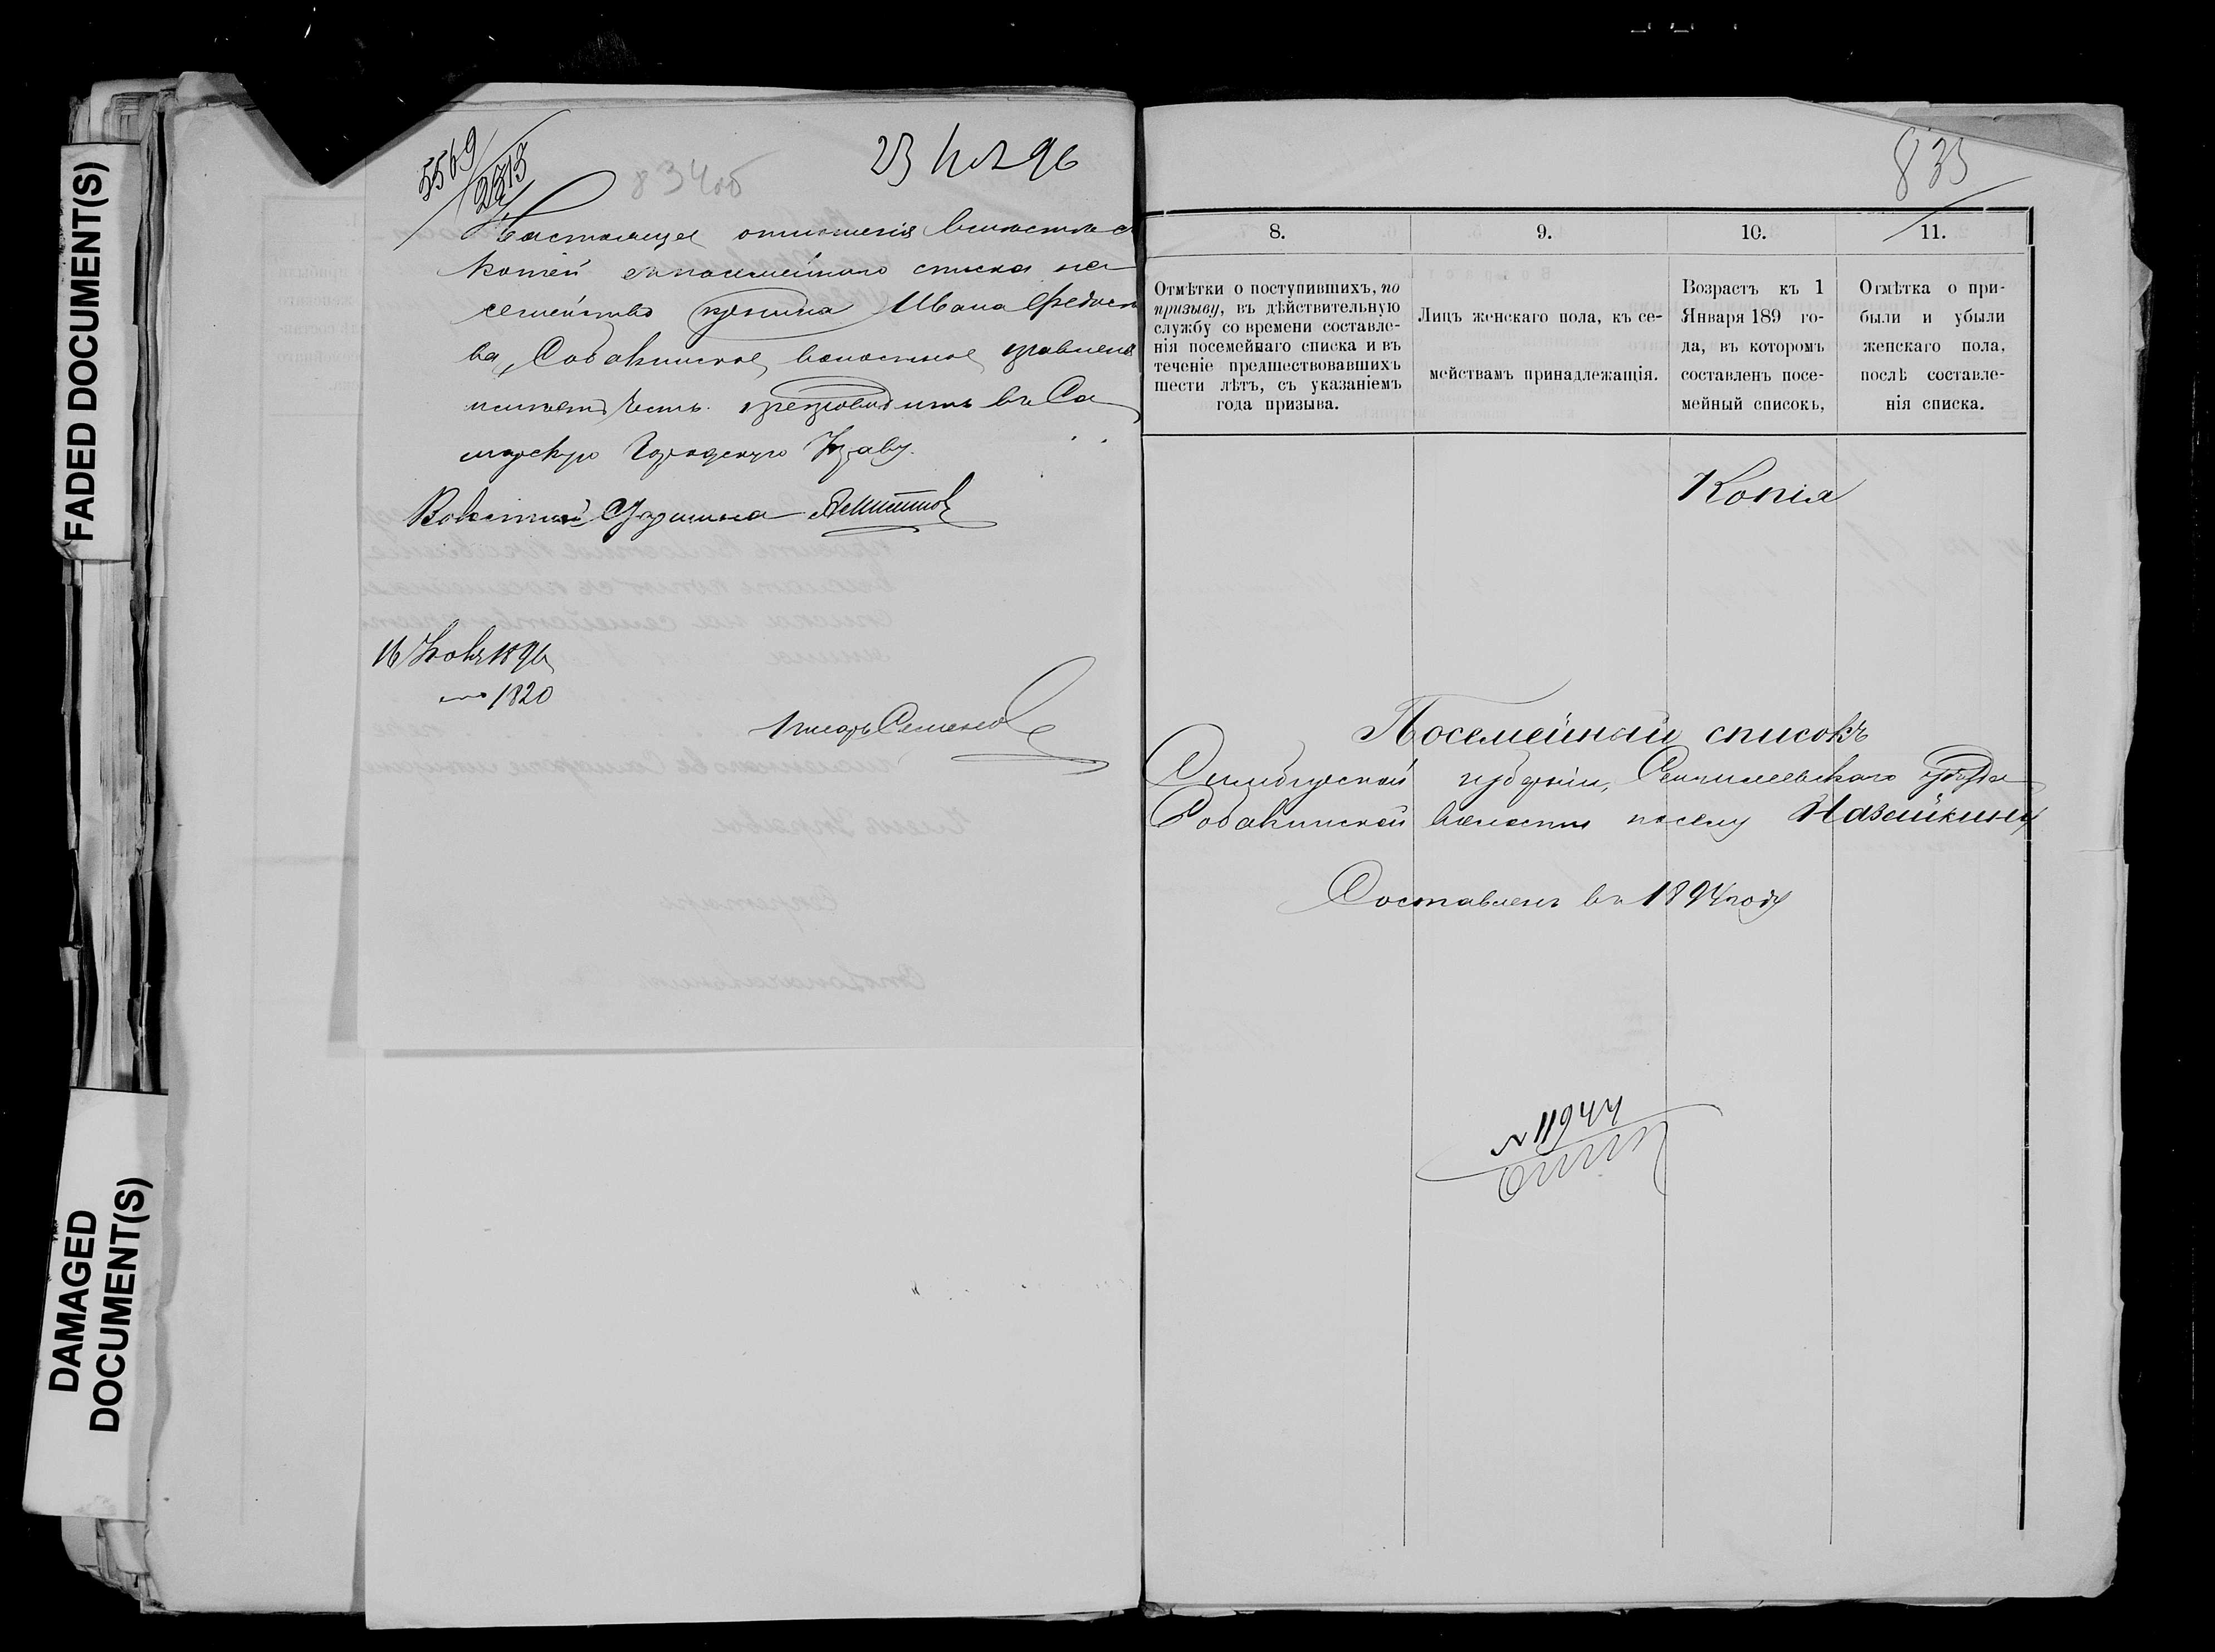 FADED DOCUMENT(S)
DAMAGED
DOCUMENT(S)
5569
2313
834об
23 96
Настоящее отношенія вместе съ
копіей съ посемейнаго списка на
семейство Ивана Федосѣ
ва, Собакинское волостное правленіе
имѣетъ честь препроводить въ Са
марскую Городскую Управу.
Волостной Старшина
16 Ноября 1896
№ 1820
Писарь Семенов
835
8.
9.
10.
11.
Отмѣтки о поступившихъ, по
призыву, въ дѣйствительную
службу со времени составле-
нія посемейнаго списка и въ
теченіе предшествовавшихъ
шести лѣтъ, съ указаніемъ
года призыва.
Лицъ женскаго пола, къ се-
мействамъ принадлежащія.
Возрастъ къ 1
Января 189 го-
да, въ которомъ
составленъ посе-
мейный списокъ,
Отмѣтка о при-
были и убыли
женскаго пола,
послѣ составле-
нія списка.
Копія
Посемейный списокъ
Симбирской губерніи, Сенгилеевскаго уѣзда
Собакинской волости по селу Назайкину
Составленъ въ 1894 году
№ 11944